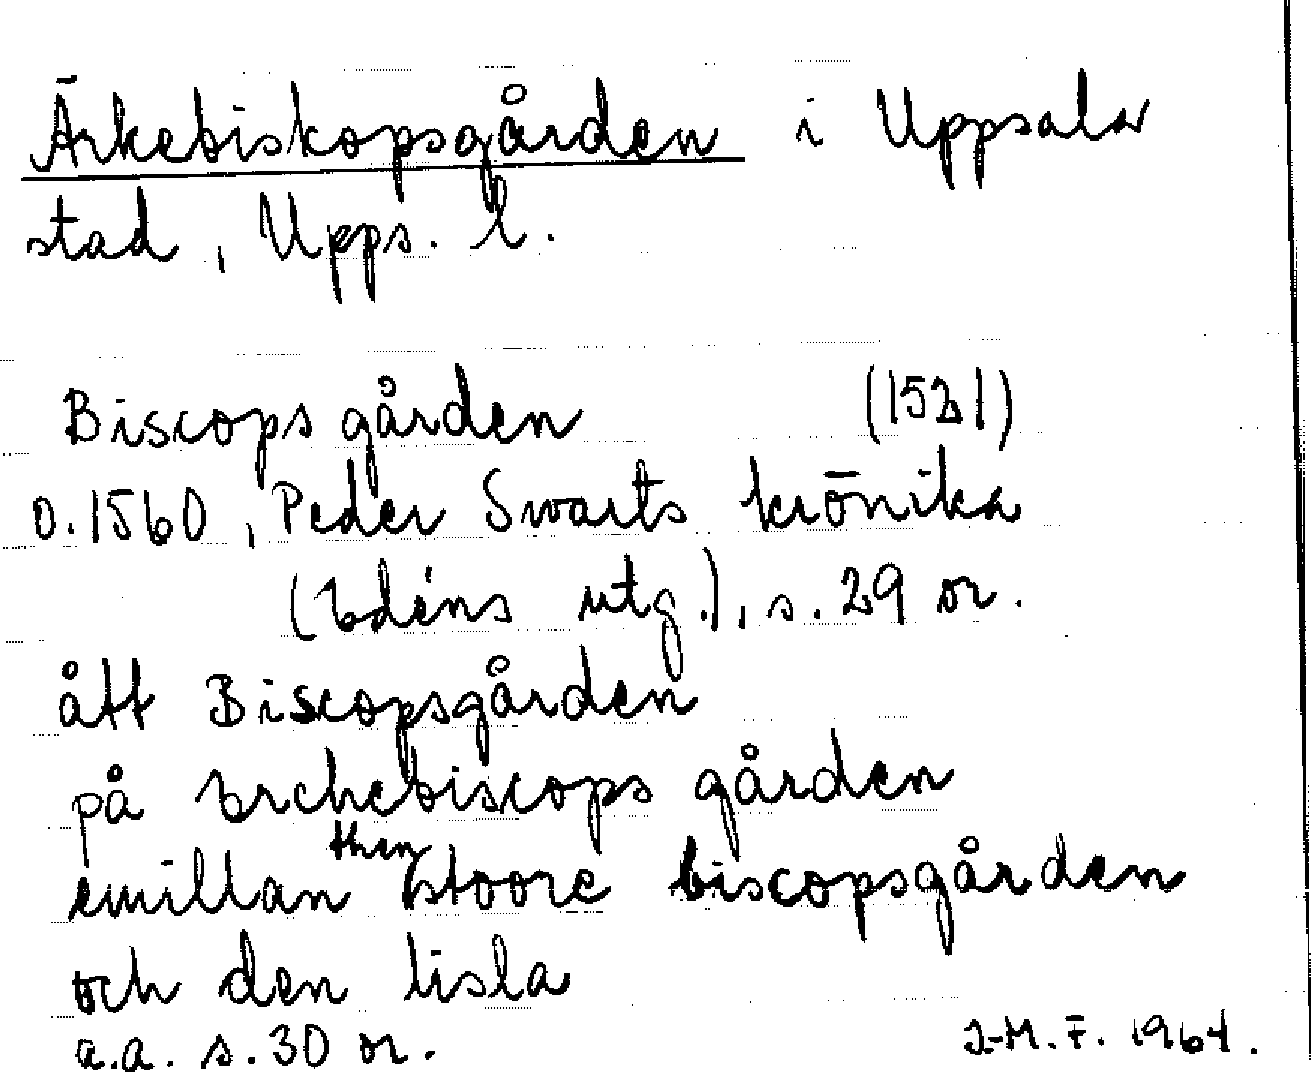 Ärkebiskopsgården i Uppsala
stad, Upps. l.
Biscops gården (1521)
o. 1560, Peder Swarts krönika
(Edéns utg.), s. 29 or.
ått Biscopsgården
på Erchebiscops gården
emillan then stoore biscopsgården
och den lisla
a.a. s. 30 or.
I-M. F. 1964.